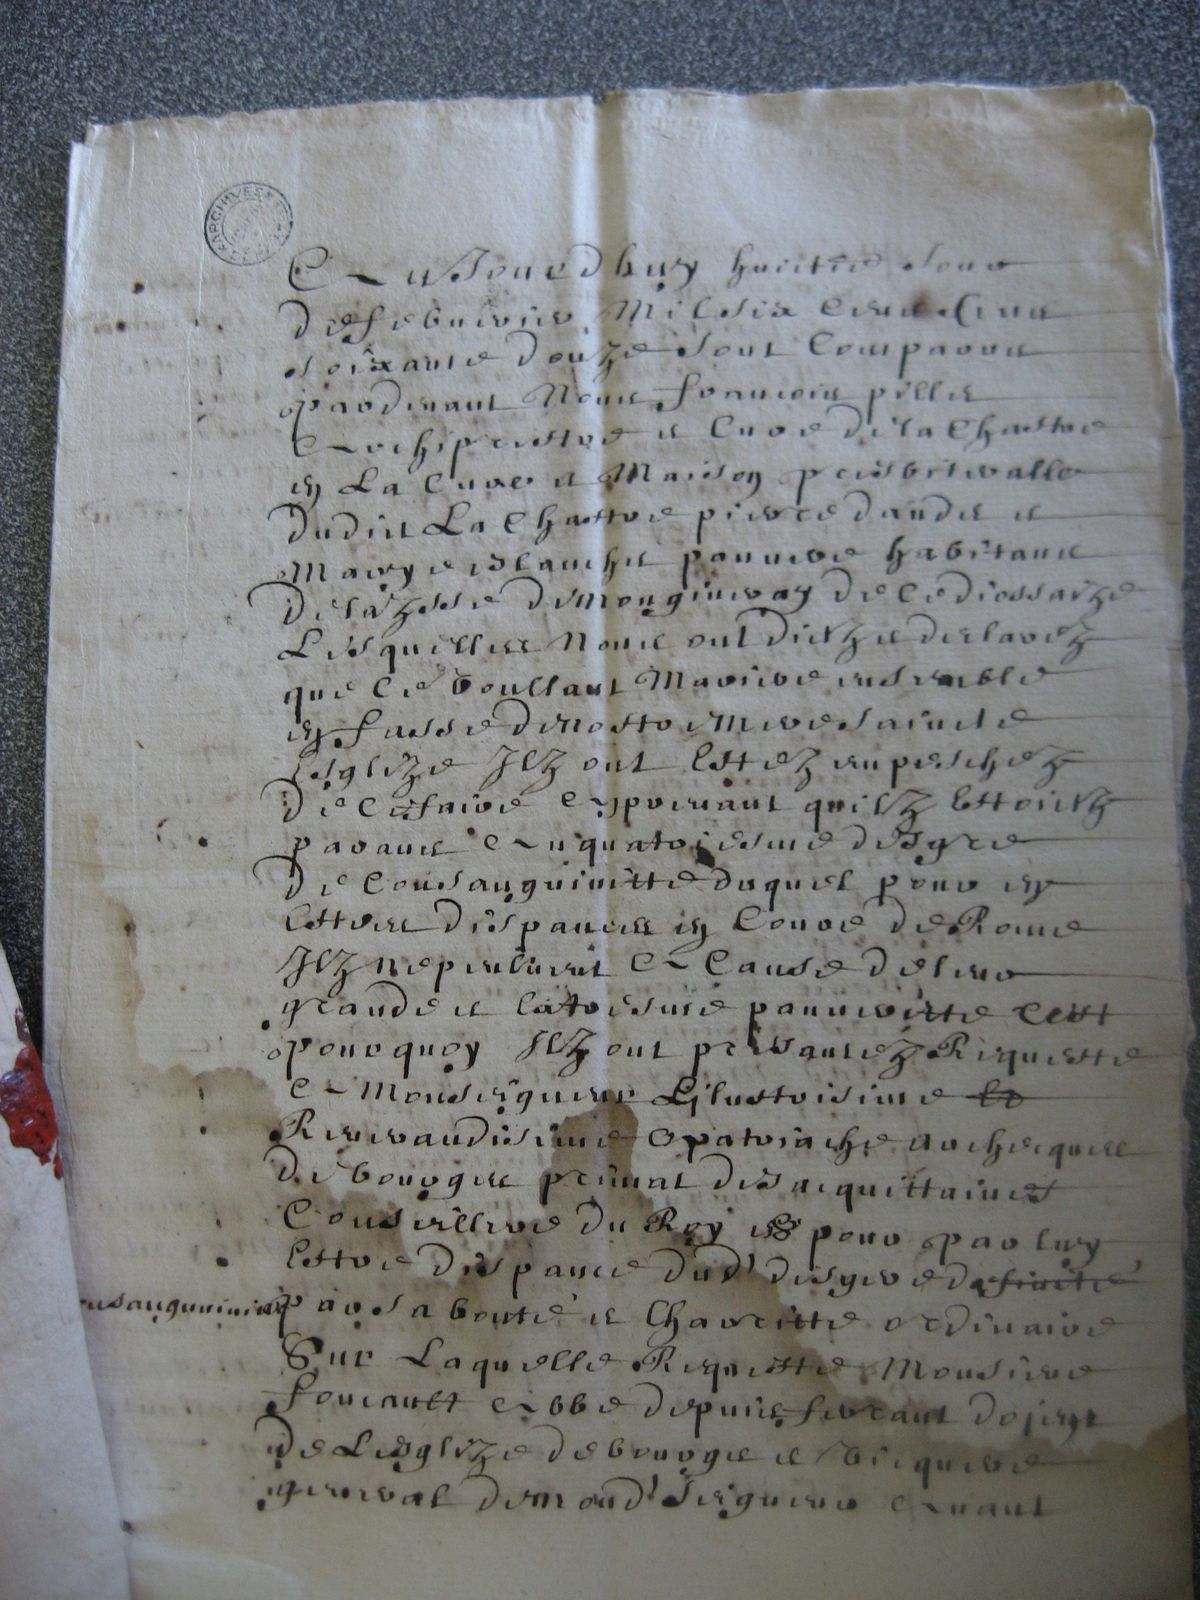 ARCHIVES
Aujourdhuy huictie Jour
de febvrier Mil six cens
soixante douze sont Comparus
pardevant Nous francois
Archiprestre et Curé de la Chastre
en La Cure et Maison presbiteralle
dudict La Chastre pierre dandet et
Marye blanchet pauvre habitans
de la de ce diossaize
Lesquelles Nous ont dictz et desclarez
que Ce voullant Marier ensemble
en fasse de nostre Mere saincte
Esglize Ilz ont Estez empeschez
De Ce faire Aprenant quilz Estoictz
parans Au quatriesme desgre
De Consanguinitte duquel pour en
Estre dispances en Court de Rome
Ilz ne peuluent A Cause de leur
grande et pauvreitte Cest
pourquoy Ilz ont presantez Requeste
A Monseigneur Lilustrisime et
Reverandisime patriache archevques
de bourges primat des acquittaines
Conseillere du Roy pour par luy
Estre dispance dud' desgre d
consanguinite par sa bonté et Charitte ordinaire
Sur Laquelle Requeste Monsieur
foucault Abbe de puis ferrant dojent
de Lesglize de bourges et vicquere
general de mond' seigneur Auant